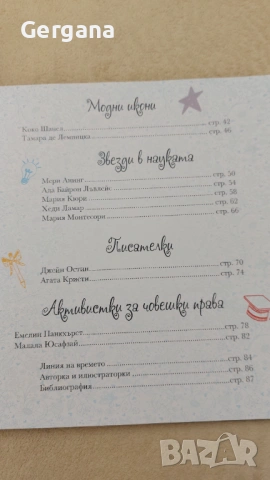 Gergana
Модни икони
Коко Шанел стр. 42
Тамара де Лемпицка стр. 46
Звезди в науката
Мери Анинг стр. 50
Ада Байрон Лъвлейс стр. 54
Мария Кюри стр. 58
Хеди Ламар стр. 62
Мария Монтесори стр. 66
Писателки
Джейн Остин стр. 70
Агата Кристи стр. 74
Активистки за човешки права
Емелин Панкхърст стр. 78
Малала Юсафзай стр. 82
Линия на времето стр. 84
Авторка и илюстраторки стр. 86
Библиография стр. 87
BAZAR
bg